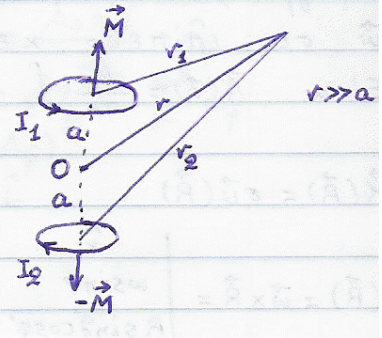 M⃗
r₁
I₁
a
r
r≫a
O
r₂
a
I₂
-M⃗